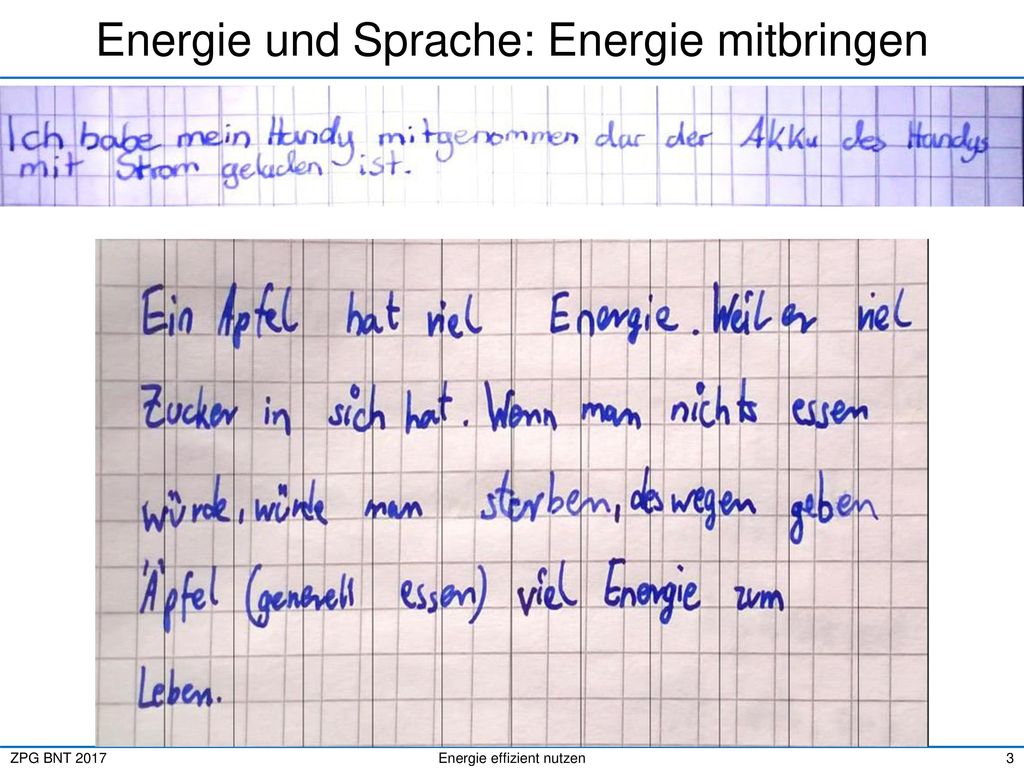 Energie und Sprache: Energie mitbringen
Ich habe mein Handy mitgenommen dar der Akku des Handys
mit Strom geladen ist.
Ein Apfel hat viel Energie. Weil er viel
Zucker in sich hat. Wenn man nichts essen
würde, würde man sterben, deswegen geben
Äpfel (generell essen) viel Energie zum
Leben.
ZPG BNT 2017 Energie effizient nutzen 3